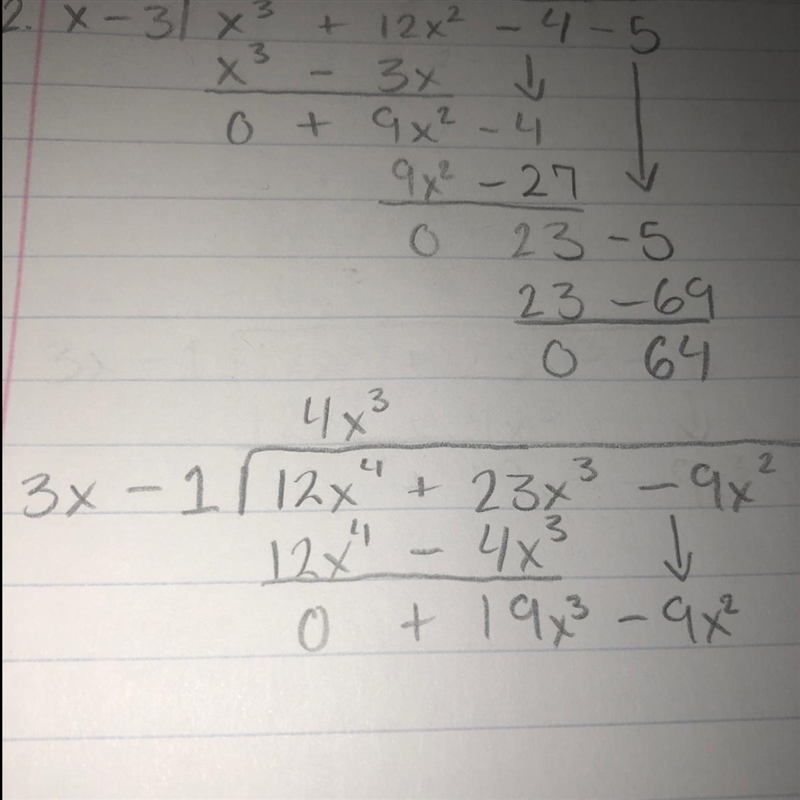 2. x - 3 | x³ + 12x² - 4 - 5
x³ - 3x ↓
0 + 9x² - 4
9x² - 27
0 23 - 5
23 - 69
0 64
4x³
3x - 1 | 12x⁴ + 23x³ - 9x²
12x⁴ - 4x³ ↓
0 + 19x³ - 9x²